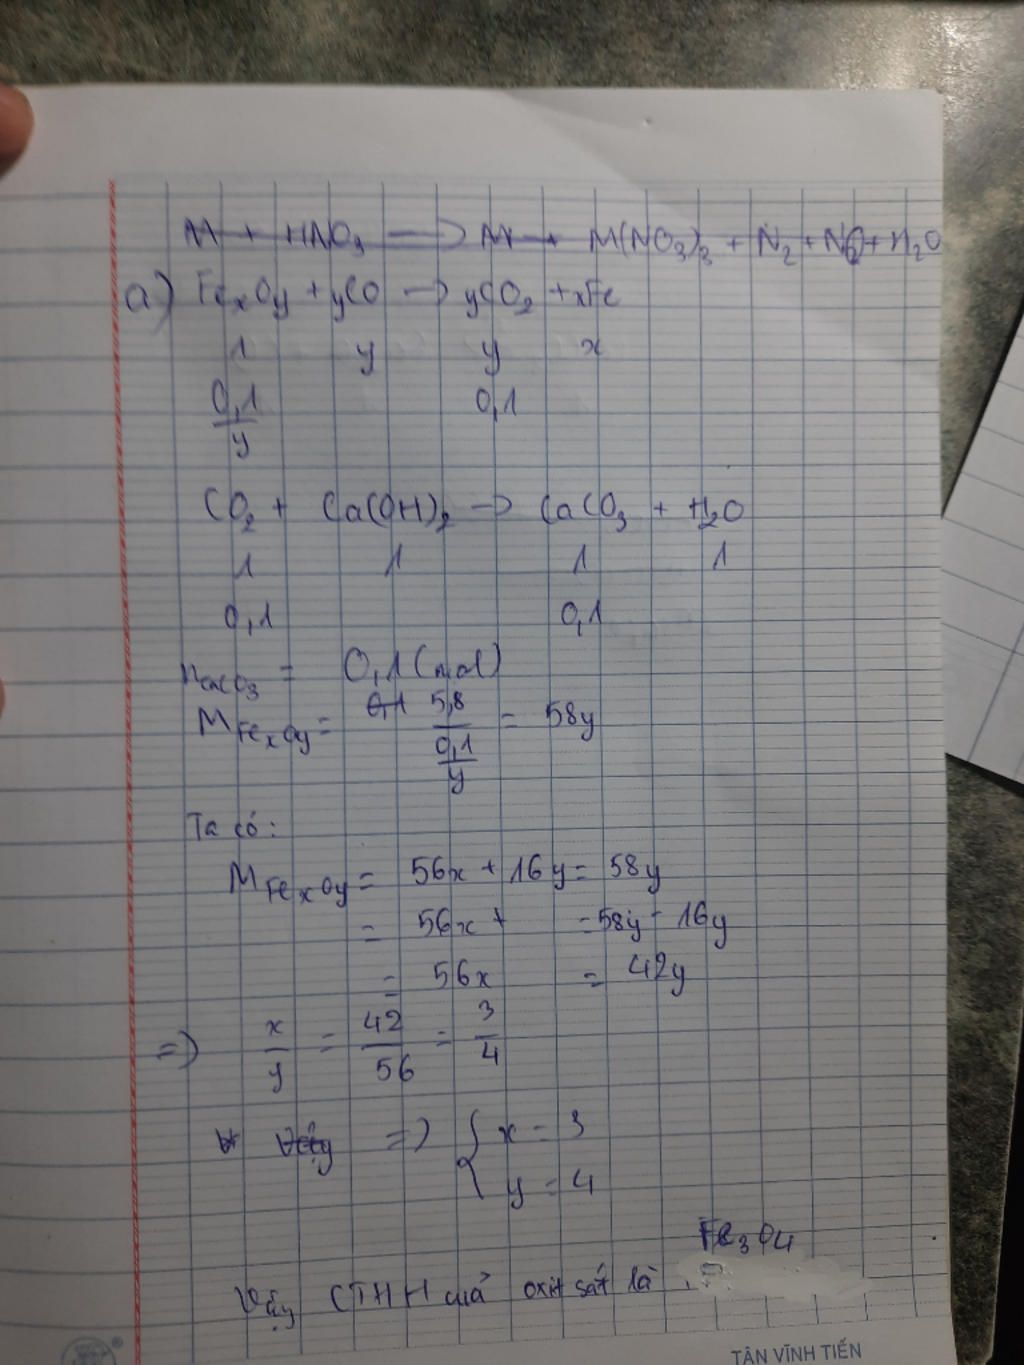 M + HNO3 → M + M(NO3)3 + N2 + NO + H2O
a) FexOy + yCO → yCO2 + xFe
1 y y x
0,1/y 0,1
CO2 + Ca(OH)2 → CaCO3 + H2O
1 1 1 1
0,1 0,1
nCaCO3 = 0,1 (mol)
MFexOy = 0,1 5,8/(0,1/y) = 58y
Ta có:
MFexOy = 56x + 16y = 58y
= 56x + = 58y - 16y
= 56x = 42y
=> x/y = 42/56 = 3/4
Vậy => { x = 3
y = 4
Fe3O4
Vậy CTHH của oxit sắt là
TÂN VĨNH TIẾN